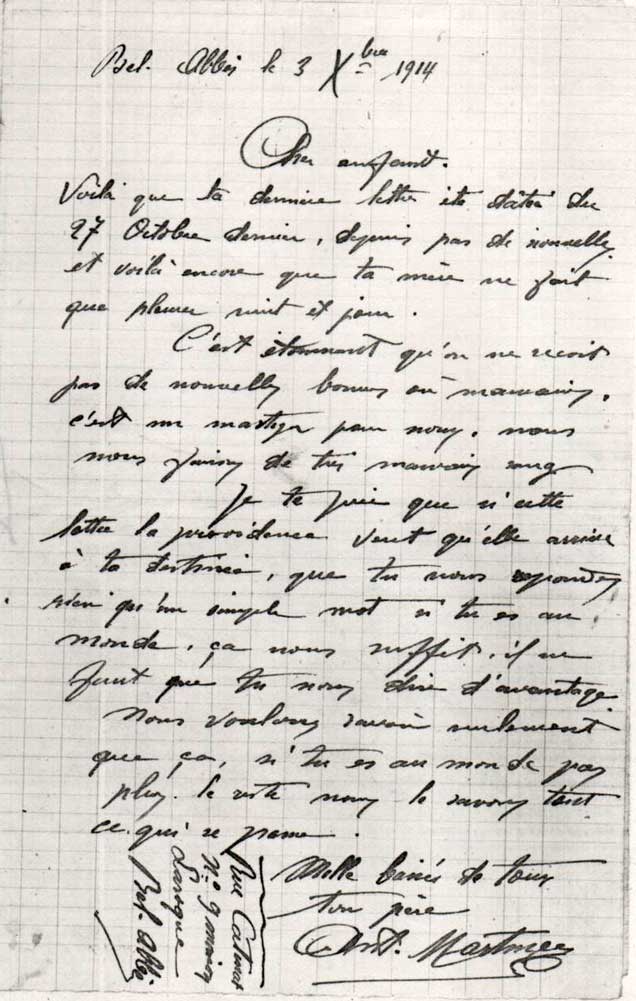 Bel. Abbès le 3 Xbre 1914
Cher enfant.
Voilà que ta dernière lettre été dâtée du
27 Octobre dernier, depuis pas de nouvelles
et voilà encore que ta mère ne fait
que pleurer nuit et jour.
C'est étonnant qu'on ne reçoit
pas de nouvelles bonnes où mauvaises,
c'est un martyr pour nous. nous
nous faisons de très mauvais sang
Je te prie que si cette
lettre la providence veut qu'elle arrive
à ta destinée, que tu nous repondes
rien qu'un simple mot si tu es au
monde, ça nous suffit, il ne
faut que tu nous dire d'avantage
Nous voulons savoir seulement
que ça, si tu es au monde pas
plus. le reste nous le savons tout
ce qui se passe.
Mille baisés de tous
ton père
Ant. Martinez
Rue Catinat
N° 9 maison
Laroque
Bel-Abbès